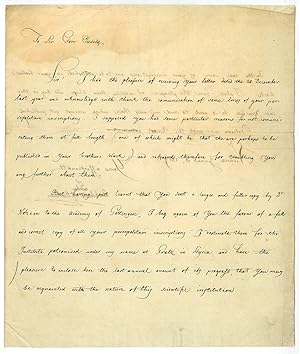 To Sir Gore Ouseley
Sir I had the pleasure of receiving your letter dated the 22 December
last year and acknowledge with thank the communication of some lines of your per-
sepolitan inscriptions. I supposed you has some particular reasons to not communi-
cating them at full length (one of which might be that they are perhaps to be
published in your brothers work) and refrained therefore for troubling You
any further about them.
But having just learnt that You sent a larger and fuller copy by Dr
to the Academy of I beg again of You the favor of a full
and correct copy of all your persepolitan inscriptions I destinate them for the
Institute patronised under my name at in and have the
pleasure to inclose here the last annual account of its progress that You may
be acquainted with the nature of this scientific institution